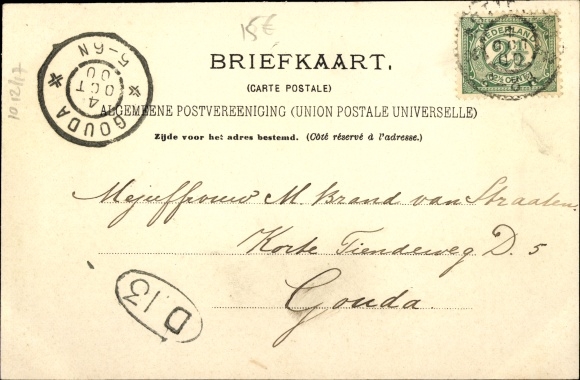 15€
BRIEFKAART.
(CARTE POSTALE)
ALGEMEENE POSTVEREENIGING (UNION POSTALE UNIVERSELLE)
Zijde voor het adres bestemd. (Côté réservé à l'adresse.)
NEDERLAND
2½ CENT
GOUDA
4
OCT
00
5-6N
10/12/17
Mejuffrouw M. Brand van Straaten.
Korte Tiendeweg D. 5
Gouda.
D.13